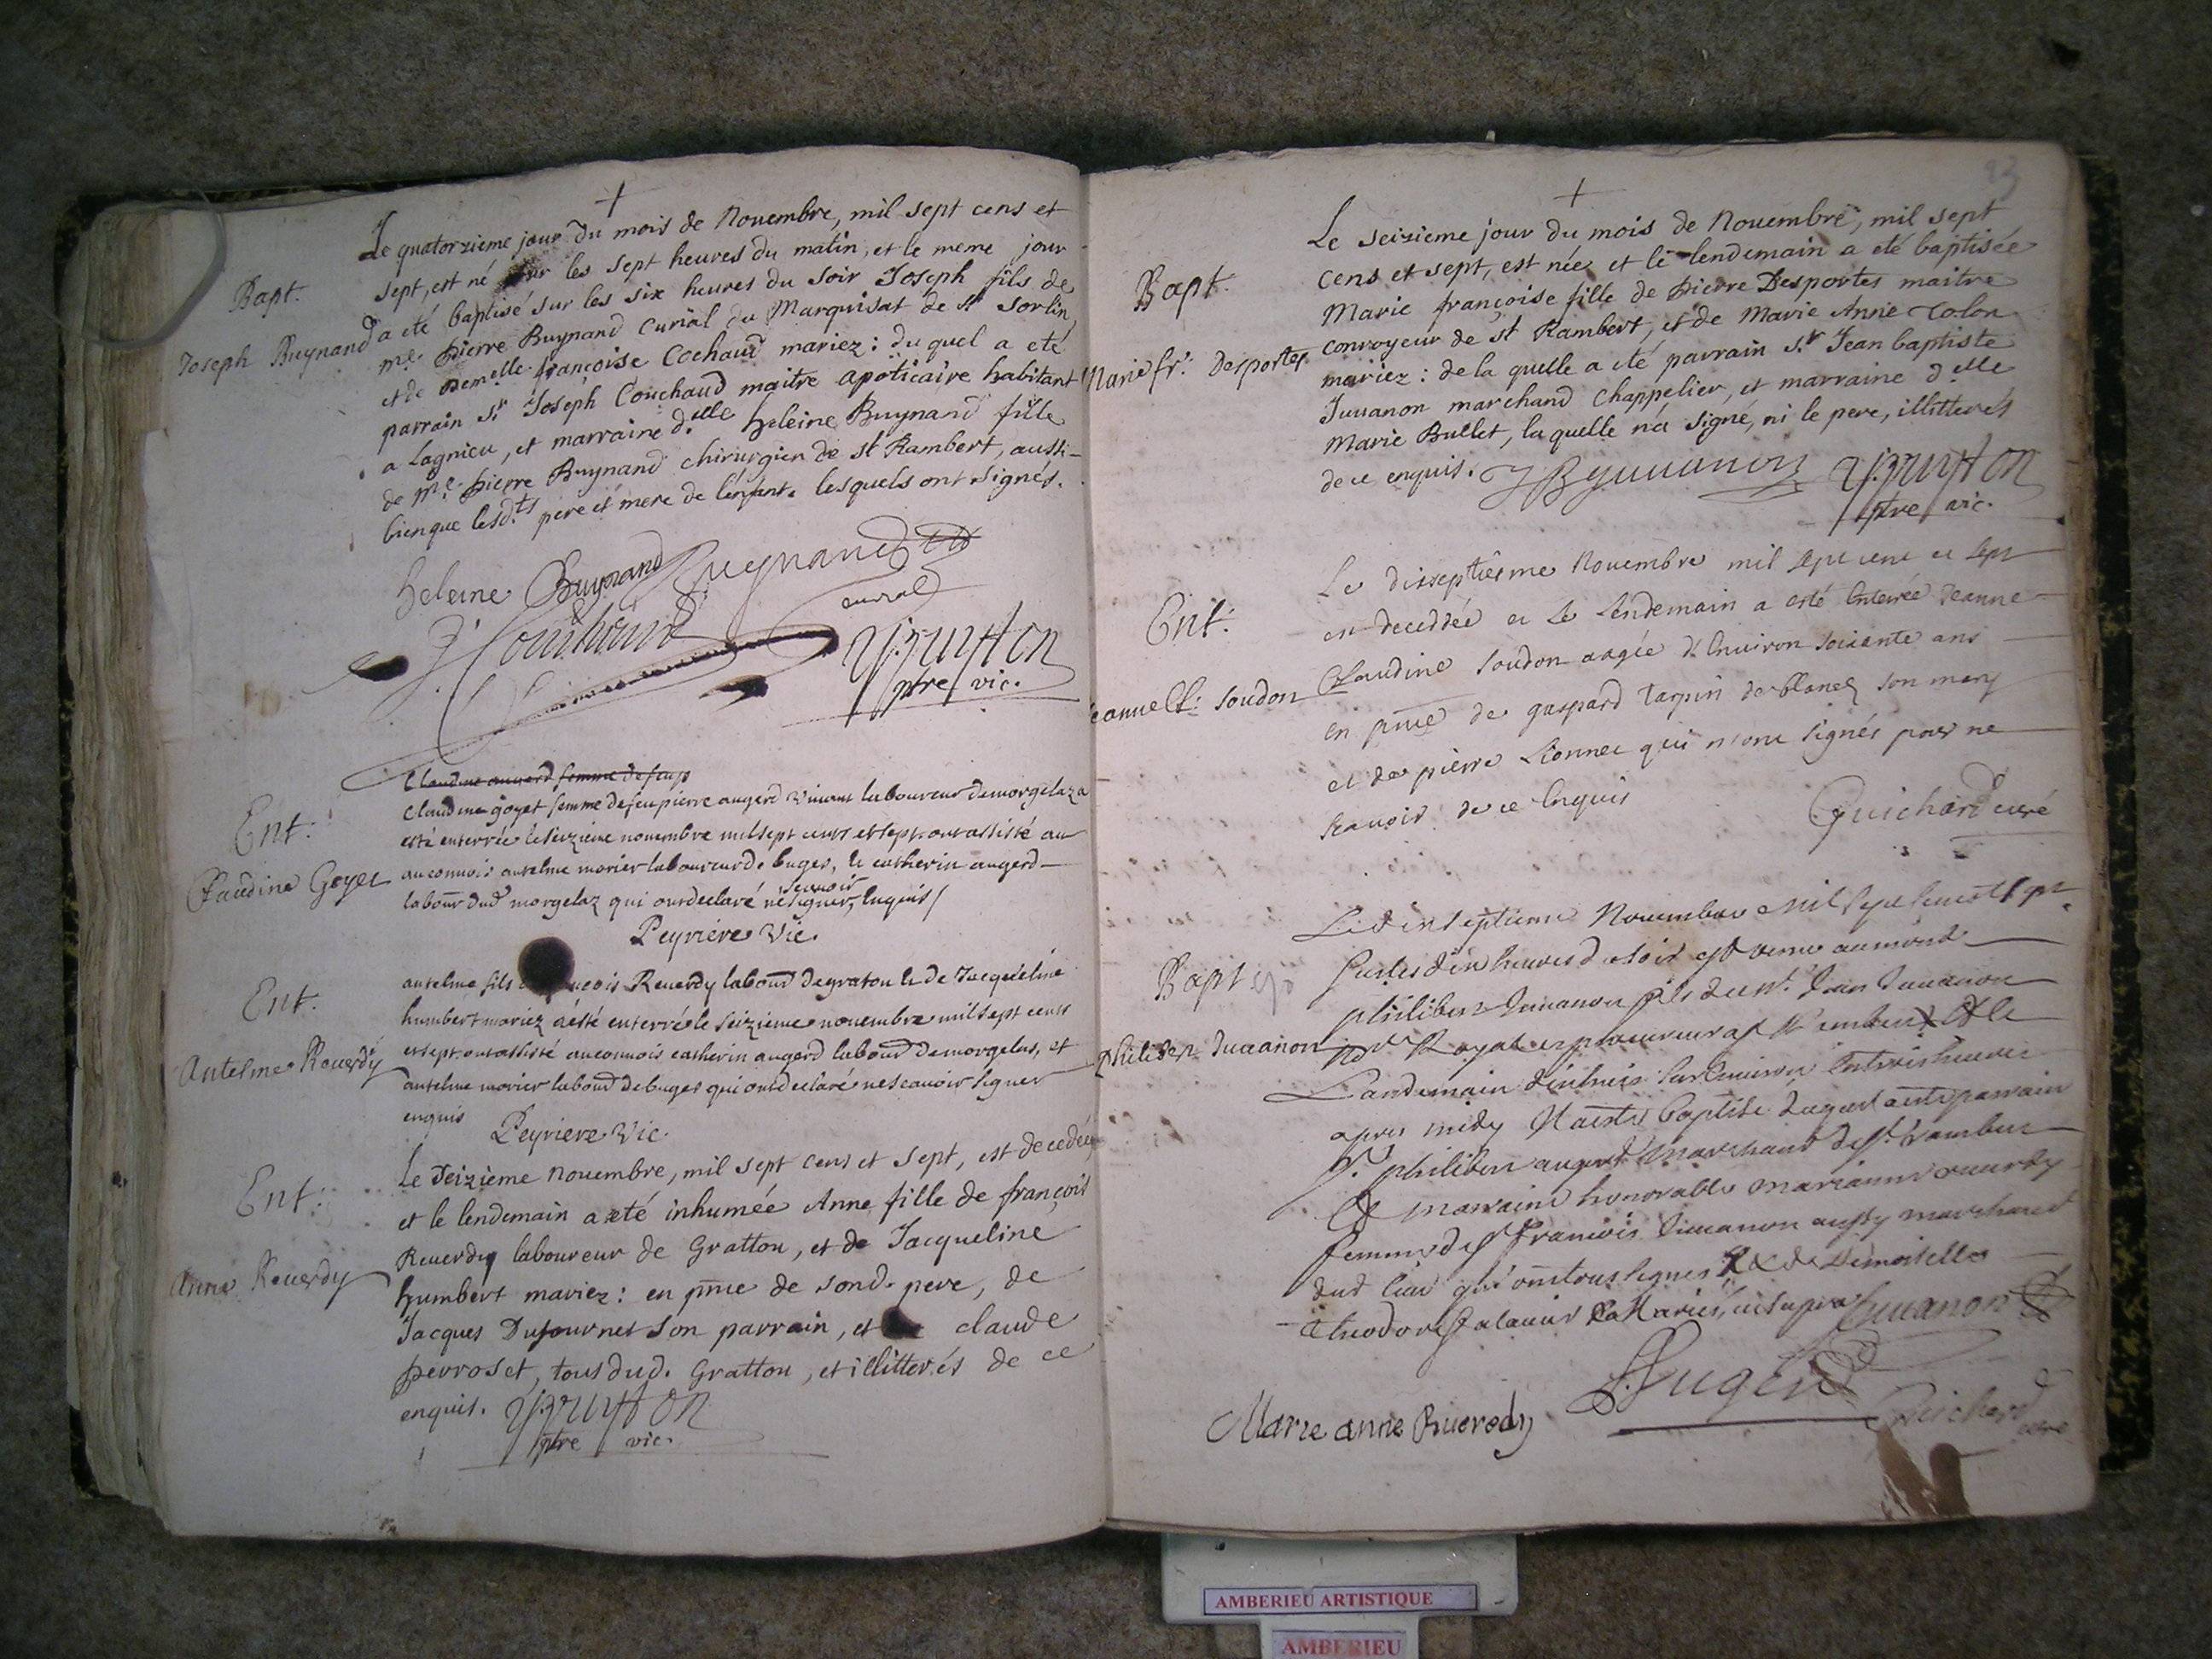 +
Le quatorzieme jour du mois de Nouembre, mil sept cens et
sept, est né sur les sept heures du matin, et le meme jour
Bapt.
Joseph Buynand
a eté baptisé sur les six heures du soir Joseph fils de
me. pierre Buynand curial du Marquisat de st Sorlin
et de Demelle françoise Cochaud mariez: du quel a eté
parrain Sr. Joseph Couchaud maitre apöticaire habitant
a Lagnieu, et marraine d.elle heleine Buynand fille
de me. pierre Buynand chirurgien de st Rambert, aussi-
bienque lesd.ts pere et mere de l'enfant. lesquels ont signés.
heleine Buynand Buynand
curial
J. Couchaud
ptre vic.
Claudine augerd femme de feu
Ent:
Claudine Goyet
Claudine goyet femme de feu pierre augerd viuant laboureur de morgelaz a
esté enterrée le seizieme nouembre mil sept cents et sept. ont assisté au
au conuois antelme morier laboureur de buges, & catherin augerd
labour dud morgelaz qui ont declaré ne scauoir signer, enquis /
Peyriere Vic.
Ent.
Antelme Reuerdy
antelme fils Reuerdy labour de graton & de Jacqueline
humbert mariez a esté enterré le seizieme nouembre mil sept cents
et sept. ont assisté au conuois catherin augerd labour de morgelas, et
antelme morier labour de buges qui ont declaré ne scauoir signer
enquis
Peyriere Vic.
Ent:
Anne Reuerdy
Le Seizieme nouembre, mil sept cens et sept, est decedée
et le lendemain a eté inhumée Anne fille de françois
Reuerdy laboureur de Gratton, et de Jacqueline
humbert mariez: en pnce de sond. pere, de
Jacques Dufournet son parrain, et claude
perroset, tous dud. Gratton, et illitterés de ce
enquis.
ptre vic.
23
+
Bapt.
Marie fr: Desportes
Le Seizieme jour du mois de Nouembre, mil sept
cens et sept, est née et le lendemain a eté baptisée
Marie françoise fille de pierre Desportes maitre
conroyeur de st Rambert, et de Marie Anne Tolon
mariez: de la quelle a eté parrain s.r Jean baptiste
Juuanon marchand chappelier, et marraine d.elle
Marie Bullet, la quelle n'a signé, ni le pere, illitterés
de ce enquis. JB Juuanon
ptre vic.
Ent:
Jeanne Cl: Soudon
Le disseptiesme Nouembre mil sept cens et sept
est decedée et le lendemain a esté enterrée Jeanne
Claudine Soudon aagée d'enuiron soixante ans
en pnce de gaspard tarpin de blanes son mary
et de pierre Lionnet qui n'ont signés pour ne
scauoir de ce enquis
Guichard curé
Bapt
philibert Juuanon
Le dixseptieme Nouembre mil sept cent et sept
sur les dix heures du soir est venu au monde
philibert Juuanon fils de Mr. Jean Juuanon
Nore Royal et procureur a St Rambert & le
Landemain dixhuit sur enuiron les trois heures
apres midy Il a esté baptisé duquel a esté parrain
Sr. philibert augerd marchand de St. Rambert
& marraine honorable marianne reuerdy
femme de Sr francois Juuanon aussy marchand
dud lieu qui ont tous signes & de Demoiselle
theodore Juuanon
Augerd
Marie anne Rueredy
Guichard
curé
AMBERIEU ARTISTIQUE
AMBERIEU